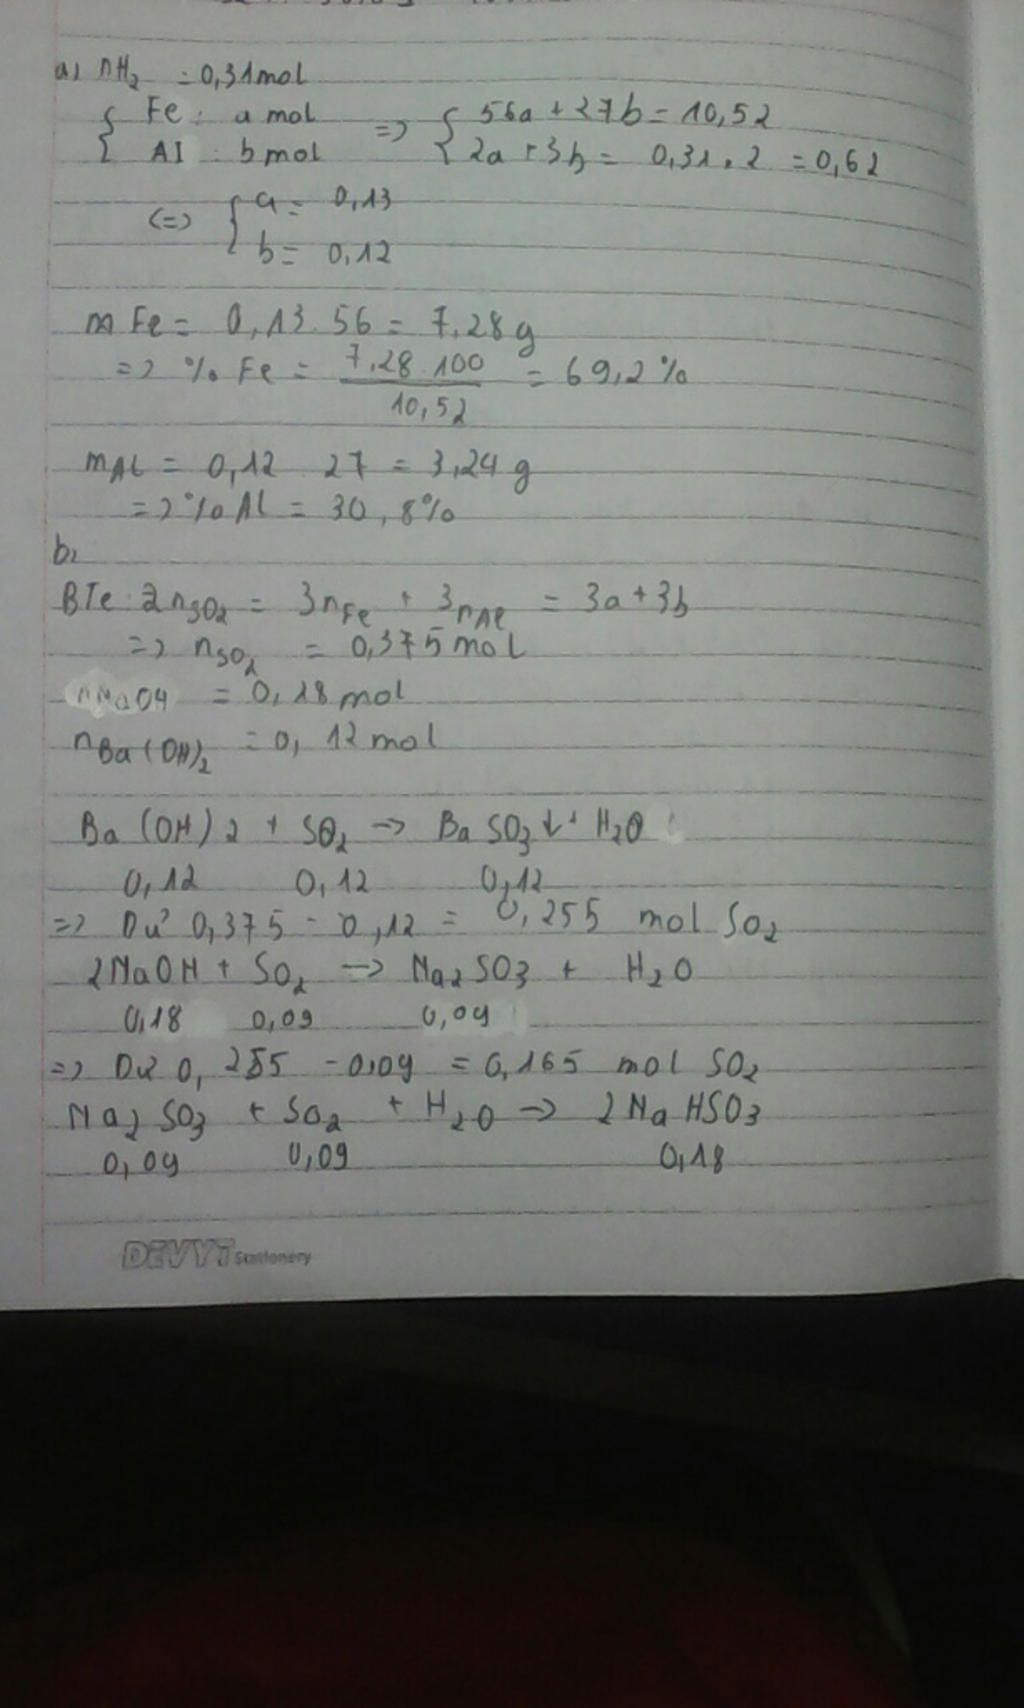 a) nH2 = 0,31mol
{ Fe : a mol => { 56a + 27b = 10,52
{ Al : b mol { 2a + 3b = 0,31 . 2 = 0,62
(=) { a = 0,13
{ b = 0,12
m Fe = 0,13 . 56 = 7,28 g
=> % Fe = 7,28 . 100 / 10,52 = 69,2%
mAl = 0,12 27 = 3,24 g
=> % Al = 30,8%
b,
BTe : 2nSO2 = 3nFe + 3nAl = 3a + 3b
=> nSO2 = 0,375 mol
nNaOH = 0,18 mol
nBa(OH)2 = 0,12 mol
Ba(OH)2 + SO2 -> BaSO3↓ + H2O
0,12 0,12 0,12
=> Dư 0,375 - 0,12 = 0,255 mol SO2
2NaOH + SO2 -> Na2SO3 + H2O
0,18 0,09 0,09
=> Dư 0,255 - 0,09 = 0,165 mol SO2
Na2SO3 + SO2 + H2O -> 2NaHSO3
0,09 0,09 0,18
DEVYT Stationery